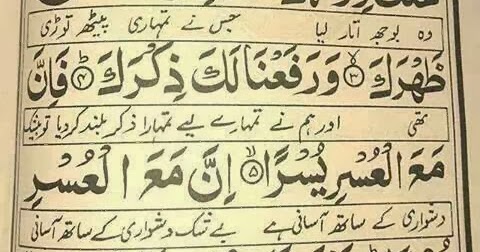 وہ بوجھ اتار لیا جس نے تمہاری پیٹھ توڑی
ظَهْرَكَ ۝۳ وَرَفَعْنَا لَكَ ذِكْرَكَ ۝۴ فَاِنَّ
تھی اور ہم نے تمہارے لیے تمہارا ذکر بلند کردیا تو بیشک
مَعَ الْعُسْرِ يُسْرًا ۝۵ اِنَّ مَعَ الْعُسْرِ
دشواری کے ساتھ آسانی ہے بے شک دشواری کے ساتھ آسانی